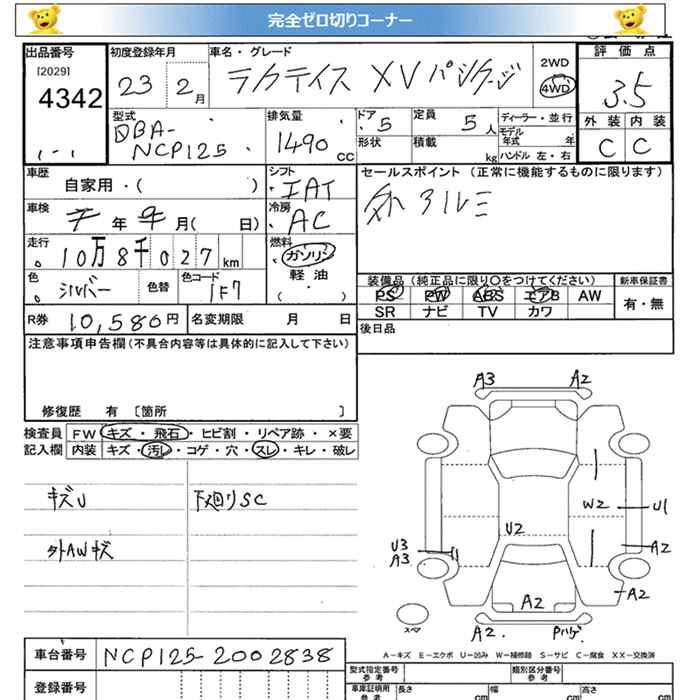 完全ゼロ切りコーナー
出品番号 初度登録年月 車名・グレード 2WD 評価点
[2029] 23 2月 ラクティス XVパッケージ 4WD 3.5
4342 型式 排気量 ドア 定員 ディーラー・並行 外装 内装
DBA- 1490cc 5 5人 モデル年式 年 C C
NCP125 形状 積載 kg ハンドル 左・右
車歴 シフト セールスポイント (正常に機能するものに限ります)
自家用・( ) IAT 外アルミ
車検 年 月( 日) 冷房 AC
走行 10万8千027km 燃料 ガソリン
軽油
( ・ )
色 シルバー 色替 色コード 1F7
装備品 (純正品に限り〇をつけてください) 新車保証書
PS PW ABS エアB AW 有・無
SR ナビ TV カワ
R券 10,580円 名変期限 月 日 後日品
注意事項申告欄 (不具合内容等は具体的に記入して下さい)
修復歴 有 [箇所 ]
検査員 FW キズ・飛石・ヒビ割・リペア跡・×要
記入欄 内装 キズ・汚レ・コゲ・穴・スレ・キレ・破レ
キズU 下廻りSC
外AWキズ
A3 A2
W2 U1
U2
U3 A2
A3
A2 A2
スペア A2 Pハゲ
A-キズ E-エクボ U-凹み W-補修跡 S-サビ C-腐食 XX-交換済
車台番号 NCP125-2002838
型式指定番号 参考 類別区分番号 参考
登録番号 車庫証明用 参考 長さ cm 幅 cm 高さ cm